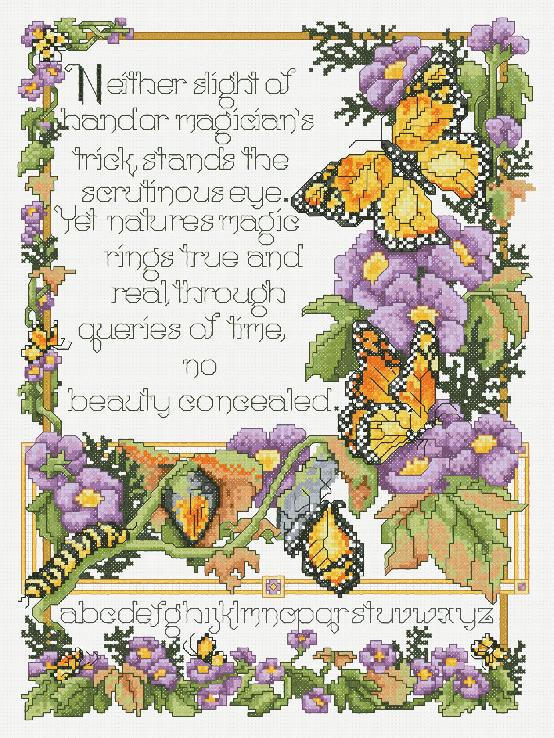 Neither slight of
hand or magician's
trick, stands the
scrutinous eye.
Yet natures magic
rings true and
real, through
queries of time,
no
beauty concealed.
abcdefghijklmnopqrstuvwxyz